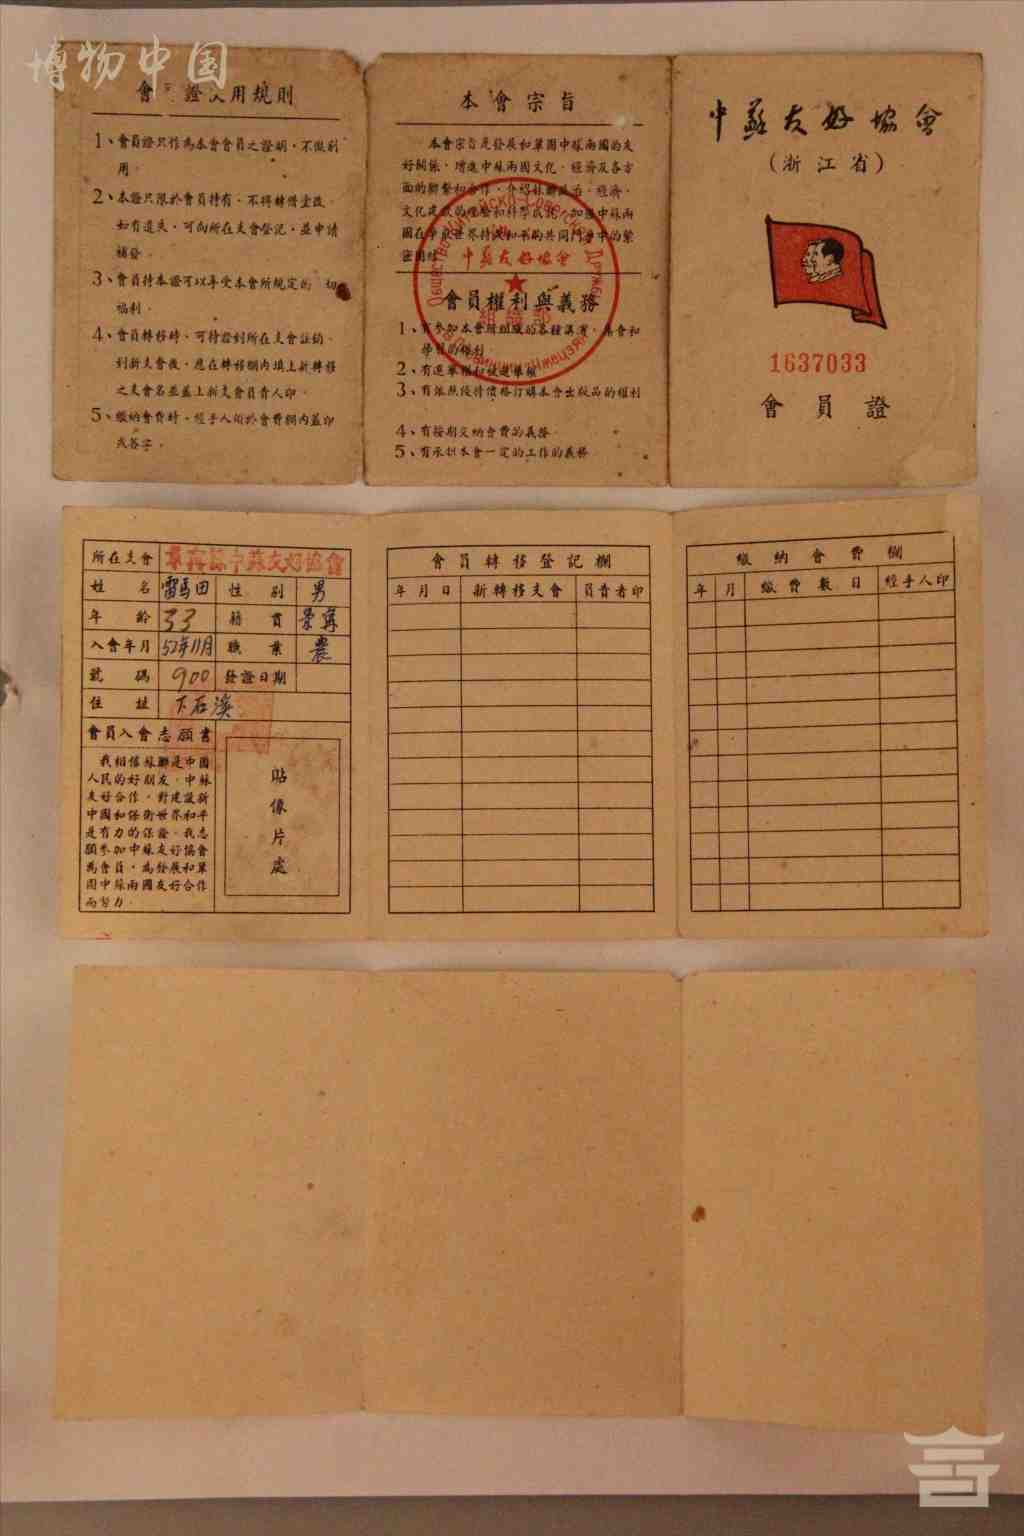 博物中国
會 證 用規則
1、會員證只作為本會會員之證明，不做別
用。
2、本證只限於會員持有，不得轉借塗改。
如有遺失，可向所在支會登記，並申請
補發。
3、會員持本證可以享受本會所規定的 切
福利。
4、會員轉移時，可持證到所在支會註銷，
到新支會後，應在轉移欄內填上新轉移
之支會名並蓋上新支會負責人印。
5、繳納會費時，經手人須於會費欄內蓋印
或签字。
本會宗旨
本會宗旨是發展和鞏固中蘇兩國的友
好關係，增進中蘇兩國文化、經濟及各方
面的聯繫和合作，介紹蘇聯政治、經濟、
文化建設的經驗和科學成就，加强中蘇兩
國在爭取世界持久和平的共同鬥爭中的緊
密團結。
中蘇友好協會
組織部
會員權利與義務
1、有參加本會所組織的各種演講、集會和
學習的權利
2、有選舉權和被選舉權
3、有依照優待價格訂購本會出版品的權利
4、有按期交納會費的義務
5、有承担本會一定的工作的義務
中蘇友好協會
(浙江省)
1637033
會員證
所在支會 景寧縣中蘇友好協會
姓名 雷馬田 性別 男
年齡 33 籍貫 景寧
入會年月 52年11月 職業 農
號碼 900 發證日期
住址 下石溪
會員入會志願書
我相信蘇聯是中國
人民的好朋友，中蘇
友好合作，對建設新
中國和保衛世界和平
是有力的保證。我志
願參加中蘇友好協會
為會員，為發展和鞏
固中蘇兩國友好合作
而努力。
貼像片處
會員轉移登記欄
年月日 新轉移支會 負責者印
繳納會費欄
年 月 繳費數目 經手人印